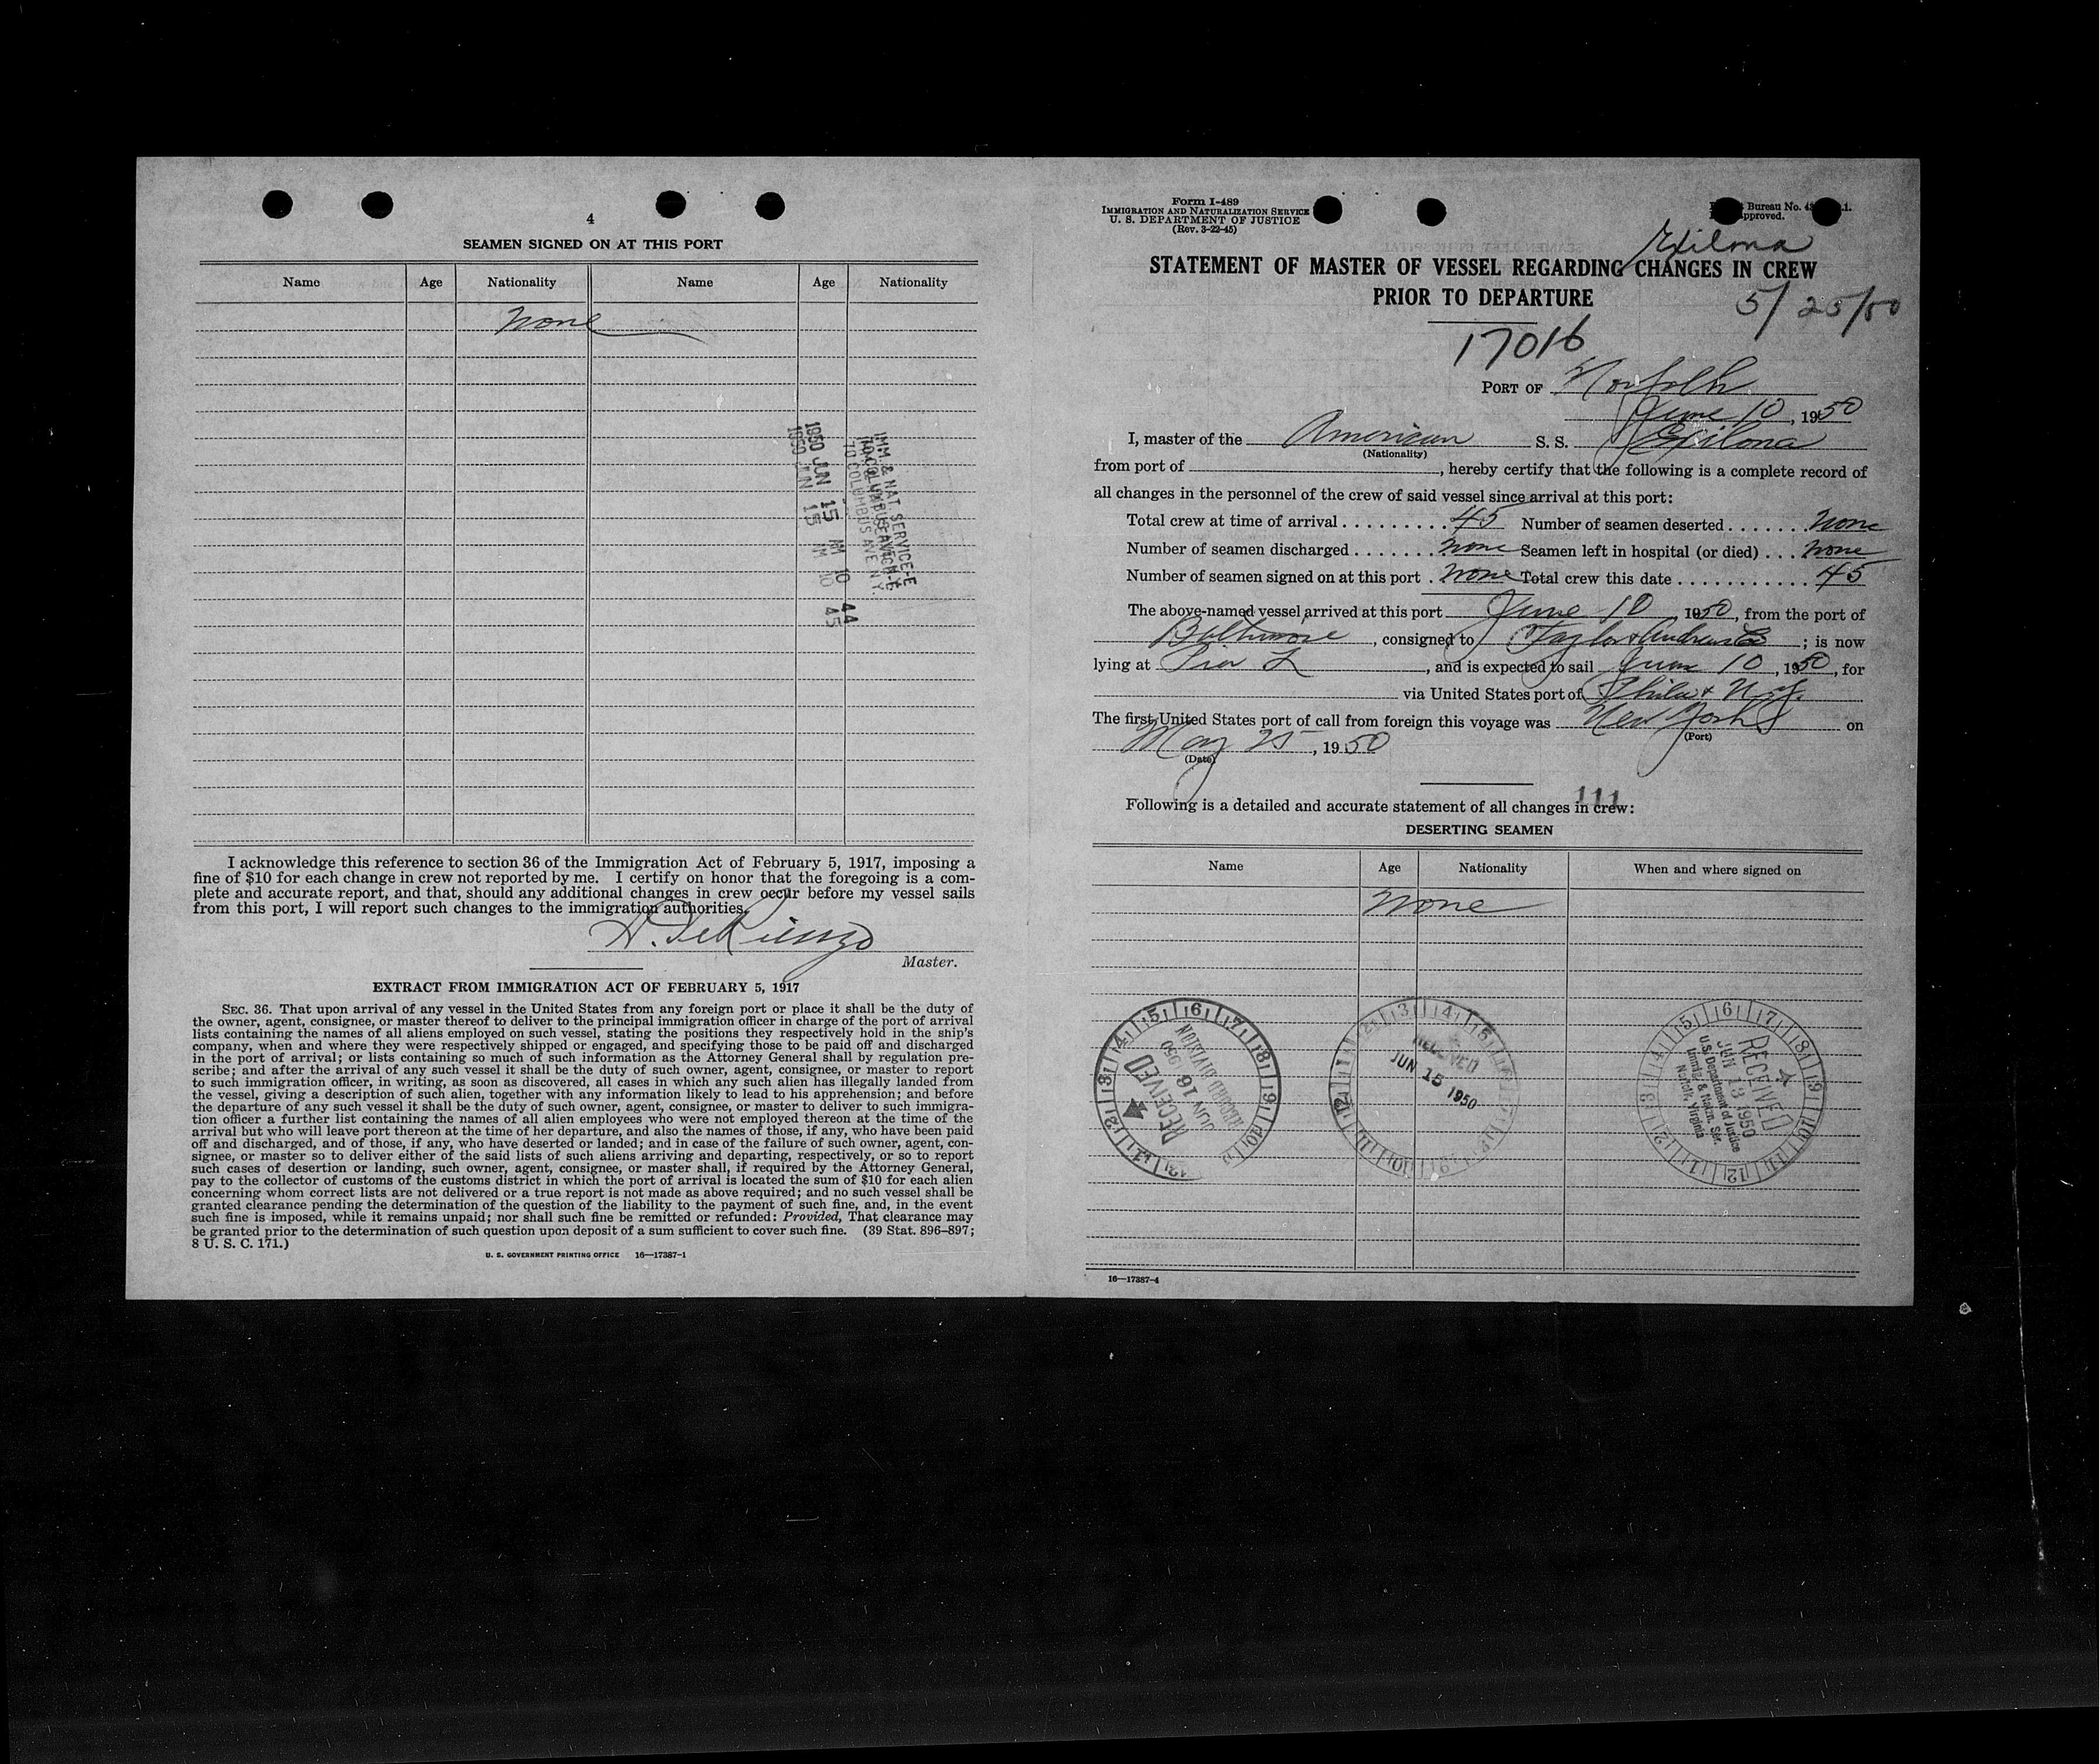 4
SEAMEN SIGNED ON AT THIS PORT
Name Age Nationality Name Age Nationality
None
IMM & NAT SERVICE-E
70 COLUMBUS AVE N.Y.
1950 JUN 15 AM 10 44
1950 JUN 15 AM 10 45
I acknowledge this reference to section 36 of the Immigration Act of February 5, 1917, imposing a
fine of $10 for each change in crew not reported by me. I certify on honor that the foregoing is a com-
plete and accurate report, and that, should any additional changes in crew occur before my vessel sails
from this port, I will report such changes to the immigration authorities.
Master.
EXTRACT FROM IMMIGRATION ACT OF FEBRUARY 5, 1917
SEC. 36. That upon arrival of any vessel in the United States from any foreign port or place it shall be the duty of
the owner, agent, consignee, or master thereof to deliver to the principal immigration officer in charge of the port of arrival
lists containing the names of all aliens employed on such vessel, stating the positions they respectively hold in the ship's
company, when and where they were respectively shipped or engaged, and specifying those to be paid off and discharged
in the port of arrival; or lists containing so much of such information as the Attorney General shall by regulation pre-
scribe; and after the arrival of any such vessel it shall be the duty of such owner, agent, consignee, or master to report
to such immigration officer, in writing, as soon as discovered, all cases in which any such alien has illegally landed from
the vessel, giving a description of such alien, together with any information likely to lead to his apprehension; and before
the departure of any such vessel it shall be the duty of such owner, agent, consignee, or master to deliver to such immigra-
tion officer a further list containing the names of all alien employees who were not employed thereon at the time of the
arrival but who will leave port thereon at the time of her departure, and also the names of those, if any, who have been paid
off and discharged, and of those, if any, who have deserted or landed; and in case of the failure of such owner, agent, con-
signee, or master so to deliver either of the said lists of such aliens arriving and departing, respectively, or so to report
such cases of desertion or landing, such owner, agent, consignee, or master shall, if required by the Attorney General,
pay to the collector of customs of the customs district in which the port of arrival is located the sum of $10 for each alien
concerning whom correct lists are not delivered or a true report is not made as above required; and no such vessel shall be
granted clearance pending the determination of the question of the liability to the payment of such fine, and, in the event
such fine is imposed, while it remains unpaid; nor shall such fine be remitted or refunded: Provided, That clearance may
be granted prior to the determination of such question upon deposit of a sum sufficient to cover such fine. (39 Stat. 896–897;
8 U. S. C. 171.)
U. S. GOVERNMENT PRINTING OFFICE 16—17387-1
Form I-489
IMMIGRATION AND NATURALIZATION SERVICE
U. S. DEPARTMENT OF JUSTICE
(Rev. 3-22-45)
Bureau No.
Approved.
Exilona
STATEMENT OF MASTER OF VESSEL REGARDING CHANGES IN CREW
PRIOR TO DEPARTURE
5/25/50
17016
PORT OF Norfolk
June 10, 1950
I, master of the American S. S. Exilona
(Nationality)
from port of , hereby certify that the following is a complete record of
all changes in the personnel of the crew of said vessel since arrival at this port:
Total crew at time of arrival . . . . . . . . . 45 Number of seamen deserted . . . . . . None
Number of seamen discharged . . . . . . . None Seamen left in hospital (or died) . . . None
Number of seamen signed on at this port . None Total crew this date . . . . . . . . . . . . 45
The above-named vessel arrived at this port June 10 1950, from the port of
Baltimore, consigned to Taylor & Andrews Co ; is now
lying at Pier L, and is expected to sail June 10, 1950, for
via United States port of Phila & N.Y.
The first United States port of call from foreign this voyage was New York on
(Port)
May 25, 1950
(Date)
111
Following is a detailed and accurate statement of all changes in crew:
DESERTING SEAMEN
Name Age Nationality When and where signed on
None
RECEIVED
JUN 16 1950
RECORD DIVISION
RECEIVED
JUN 15 1950
RECEIVED
JUN 13 1950
U.S. Department of Justice
Immig. & Natzn. Ser.
Norfolk, Virginia
16—17387-4